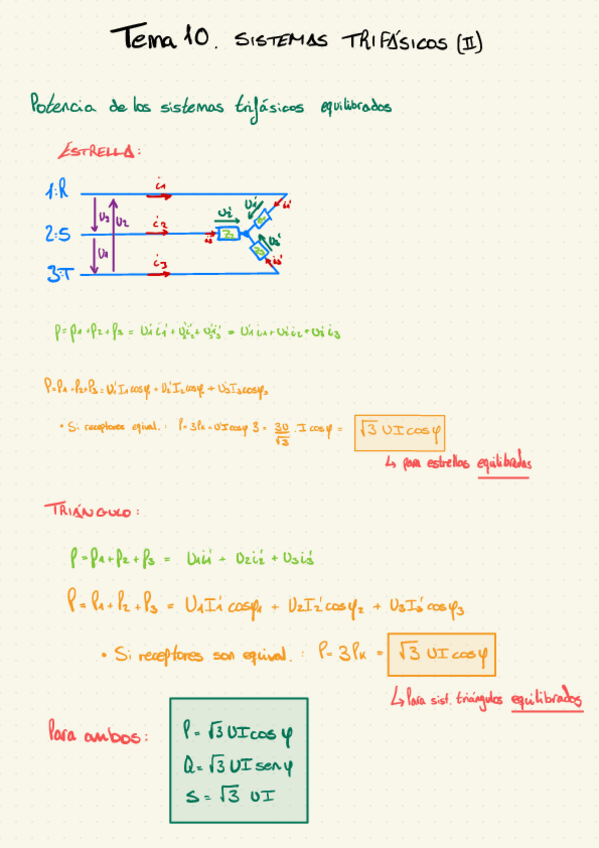 Tema 10. SISTEMAS TRIFÁSICOS (II)
Potencia de los sistemas trifásicos equilibrados
ESTRELLA:
1:R
i1
U3
U2
2:S
i2
U2'
U1'
i1'
Z2
U1
U3'
i3'
3:T
i3
p = p1 + p2 + p3 = U1'i1' + U2'i2' + U3'i3' = U1'i1 + U2'i2 + U3'i3
P = P1 + P2 + P3 = U1'I1cosφ1 + U2'I2cosφ2 + U3'I3cosφ3
• Si receptores equival.: P = 3Pk = U'I cosφ 3 = 3U/√3 · I cosφ = √3 UI cosφ
↳ para estrellas equilibradas
TRIÁNGULO:
p = p1 + p2 + p3 = U1i1' + U2i2' + U3i3'
P = P1 + P2 + P3 = U1I1' cosφ1 + U2I2' cosφ2 + U3I3' cosφ3
• Si receptores son equival.: P = 3Pk = √3 UI cosφ
↳ Para sist. triángulos equilibrados
Para ambos:
P = √3 UI cos φ
Q = √3 UI sen φ
S = √3 UI